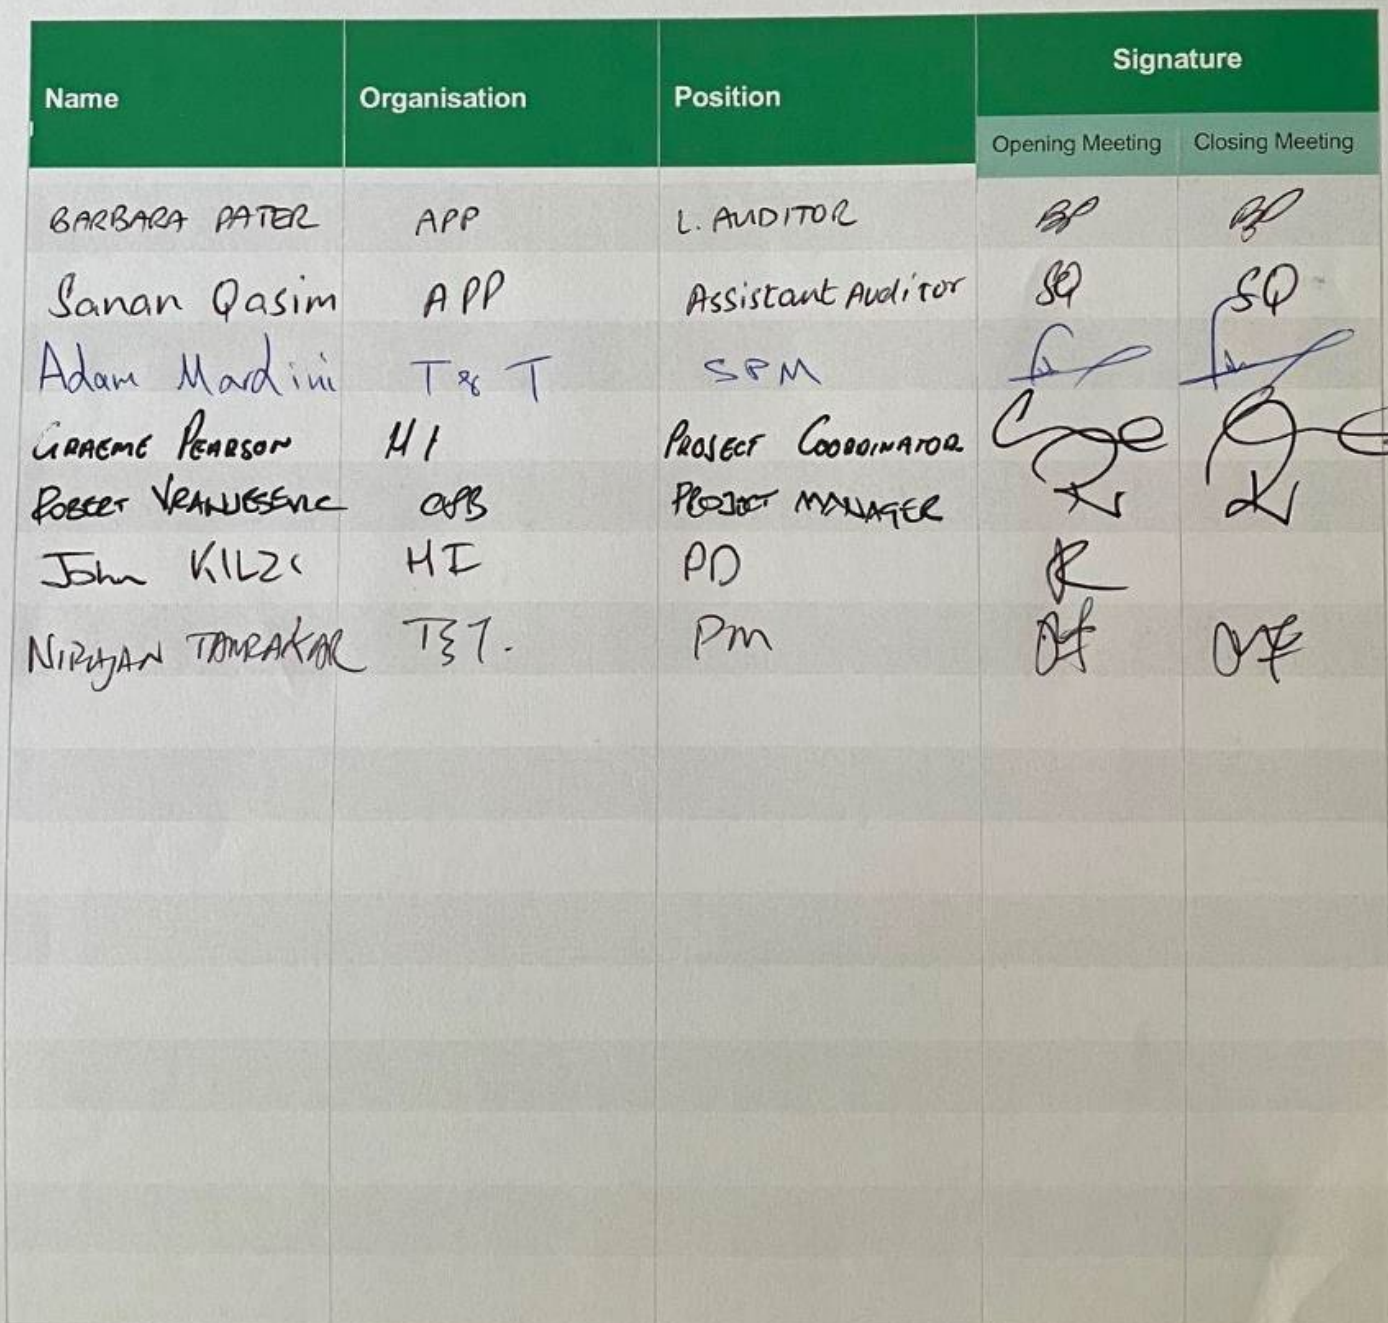 Signature
Name Organisation Position
Opening Meeting Closing Meeting
BARBARA PATER APP L. AUDITOR BP BP
Sanan Qasim APP Assistant Auditor SQ SQ
Adam Mardini T & T SPM
GRAEME PEARSON HI PROJECT COORDINATOR
ROBERT PROJECT MANAGER
John HI PD
NIRAJAN TAMRAKAR T&T. PM